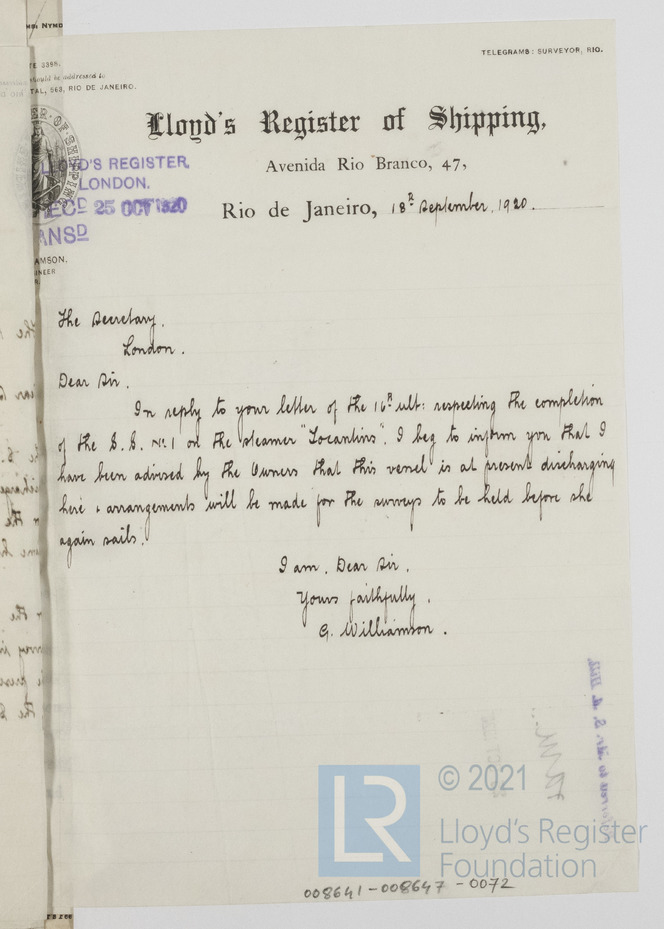 TELEGRAMS: SURVEYOR, RIO.
TE 3398.
should be addressed to
TAL, 563, RIO DE JANEIRO.
Lloyd's Register of Shipping,
Avenida Rio Branco, 47,
LLOYD'S REGISTER,
LONDON.
REC'D 25 OCT 1920
ANSD
Rio de Janeiro, 18th September, 1920.
AMSON,
The Secretary,
London.
Dear Sir.
In reply to your letter of the 16th ult: respecting the completion
of the S.S. No.1 on the steamer "Tocantins". I beg to inform you that I
have been advised by the Owners that this vessel is at present discharging
here & arrangements will be made for the surveys to be held before she
again sails.
I am, Dear Sir.
Yours faithfully.
G. Williamson.
© 2021
LR
Lloyd's Register
Foundation
008641-008647-0072